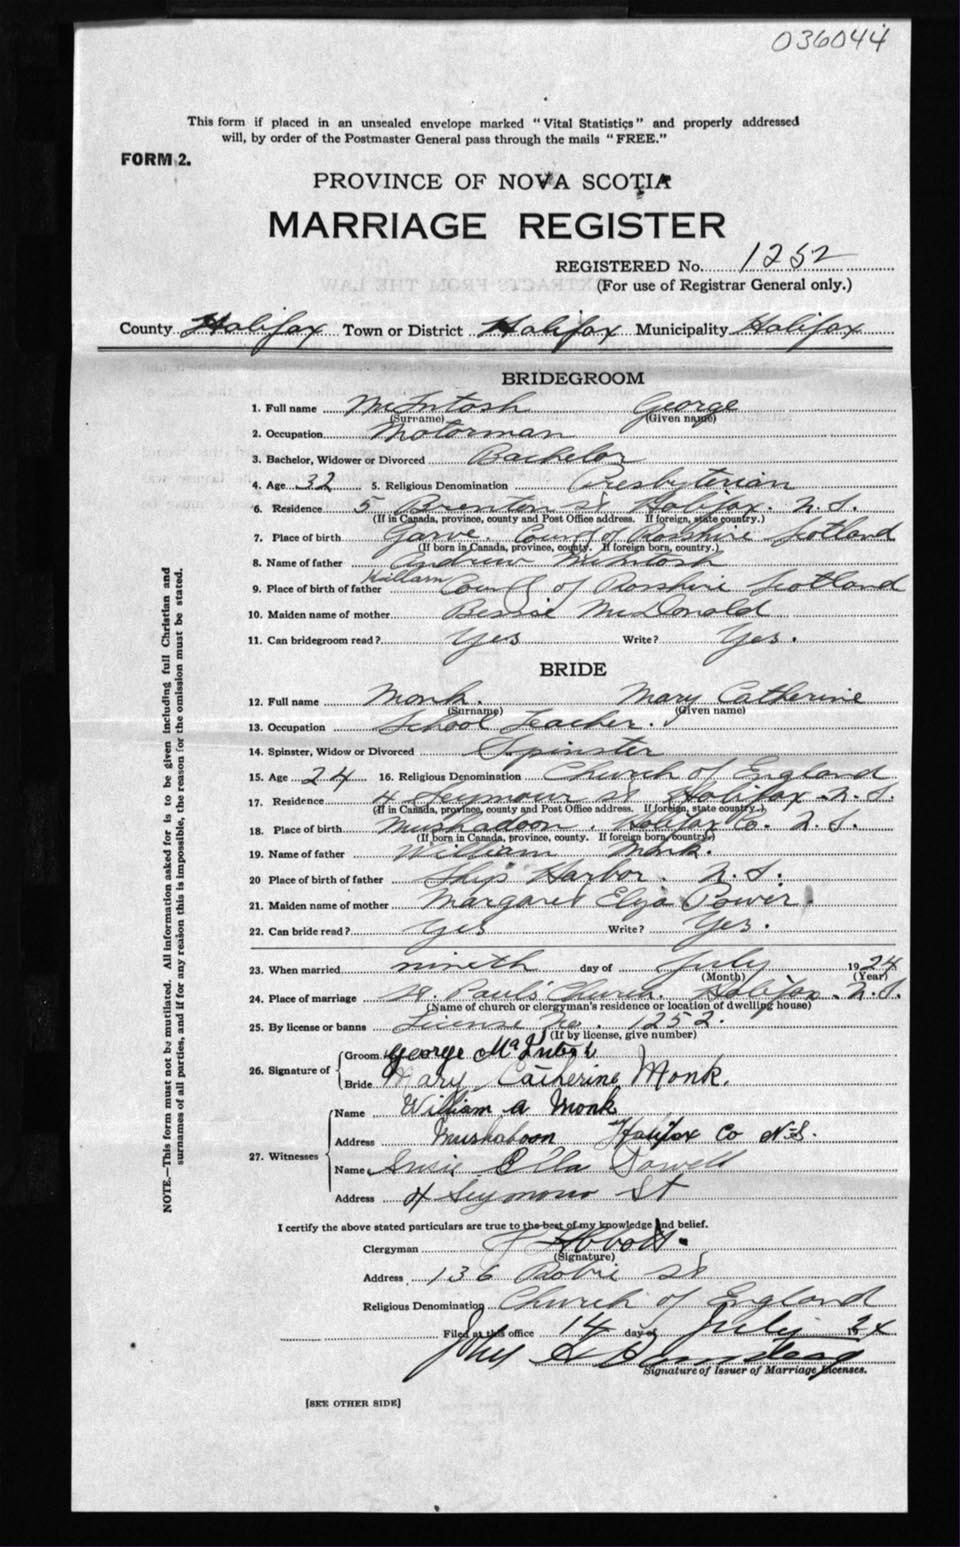 036044
This form if placed in an unsealed envelope marked "Vital Statistics" and properly addressed
will, by order of the Postmaster General pass through the mails "FREE."
FORM 2.
PROVINCE OF NOVA SCOTIA
MARRIAGE REGISTER
REGISTERED No. 1252
(For use of Registrar General only.)
County Halifax Town or District Halifax Municipality Halifax
BRIDEGROOM
1. Full name McIntosh George
(Surname) (Given name)
2. Occupation Motorman
3. Bachelor, Widower or Divorced Bachelor
4. Age 32 5. Religious Denomination Presbyterian
6. Residence 5 Brenton St Halifax. N.S.
(If in Canada, province, county and Post Office address. If foreign, state country.)
7. Place of birth Garve. County of Rosshire Scotland
(If born in Canada, province, county. If foreign born, country.)
8. Name of father Andrew McIntosh
9. Place of birth of father County of Rosshire Scotland
10. Maiden name of mother Bessie McDonald
11. Can bridegroom read? Yes Write? Yes.
BRIDE
12. Full name Monk. Mary Catherine
(Surname) (Given name)
13. Occupation School Teacher.
14. Spinster, Widow or Divorced Spinster
15. Age 24 16. Religious Denomination Church of England
17. Residence 4 Seymour St Halifax N.S.
(If in Canada, province, county and Post Office address. If foreign, state country.)
18. Place of birth Mushadoon, Halifax Co. N.S.
(If born in Canada, province, county. If foreign born, country.)
19. Name of father William Monk.
20 Place of birth of father Ship Harbor. N.S.
21. Maiden name of mother Margaret Eliza Power.
22. Can bride read? Yes Write? Yes.
23. When married nineth day of July 1924
(Month) (Year)
24. Place of marriage St Paul's Church. Halifax. N.S.
(Name of church or clergyman's residence or location of dwelling house)
25. By license or banns License No. 1252.
(If by license, give number)
26. Signature of
Groom George McIntosh
Bride Mary Catherine Monk.
27. Witnesses
Name William A Monk
Address Mushaboon Halifax Co N.S.
Name Susie Ella Powell
Address 4 Seymour St
I certify the above stated particulars are true to the best of my knowledge and belief.
Clergyman Abbott.
(Signature)
Address 136 Robie St
Religious Denomination Church of England
Filed at this office 14 day of July 1924
John
Signature of Issuer of Marriage Licenses.
[SEE OTHER SIDE]
NOTE.—This form must not be mutilated. All information asked for is to be given including full Christian and
surnames of all parties, and if for any reason this is impossible, the reason for the omission must be stated.